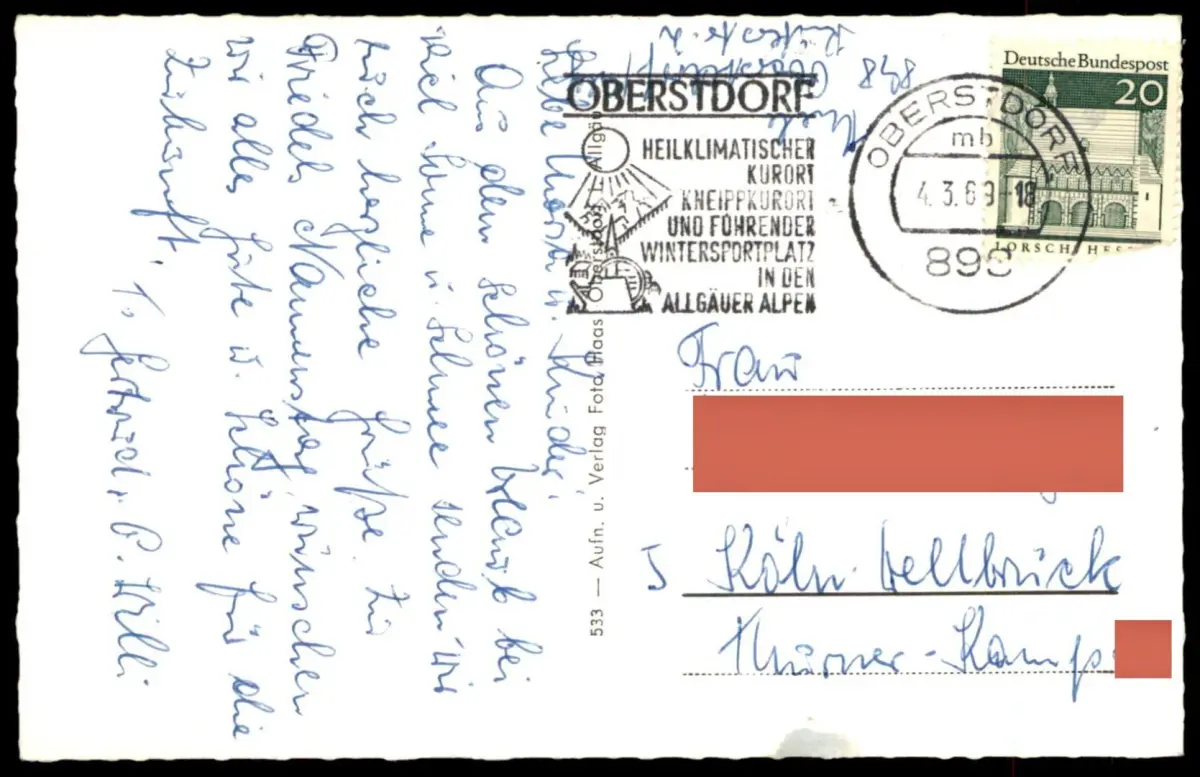 Liebe Marta u. Kinder!
Aus dem schönen Urlaub bei
viel Sonne u. Schnee senden wir
euch herzliche Grüße. Zu
Friedels Namenstag wünschen
wir alles Gute u. Schöne für die
Zukunft.
Gertrud u. P. Willi
533 — Aufn. u. Verlag Foto Haas Oberstdorf - Allgäu
898 Oberstdorf
OBERSTDORF
HEILKLIMATISCHER
KURORT
KNEIPPKURORT
UND FÜHRENDER
WINTERSPORTPLATZ
IN DEN
ALLGÄUER ALPEN
OBERSTDORF
mb
4.3.69-18
898
Deutsche Bundespost
20
LORSCH/HES
Frau
5 Köln-Dellbrück
Thurner-Kamp